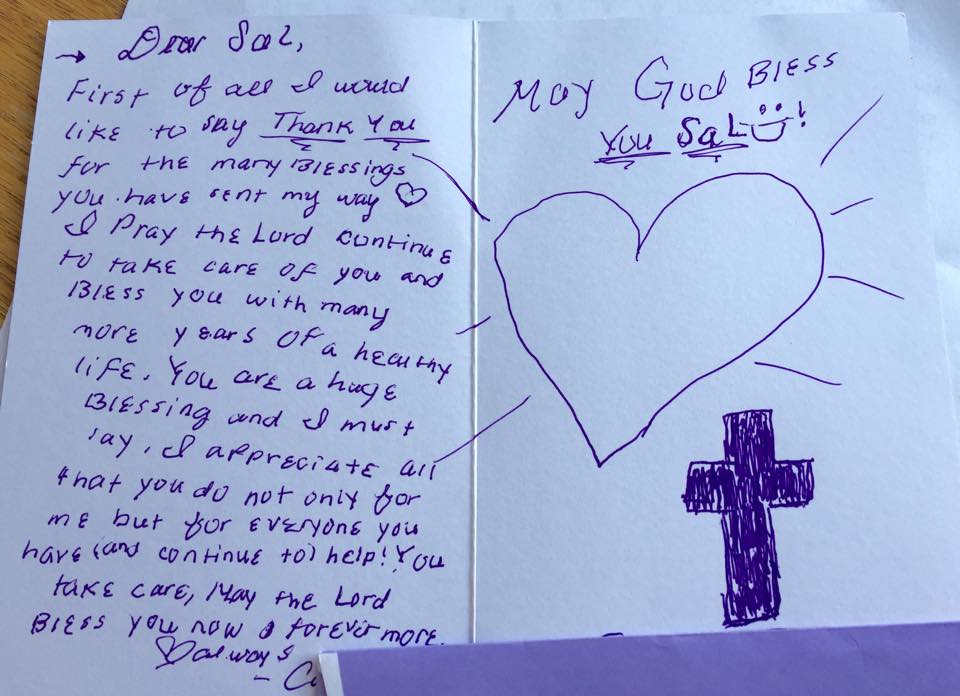 Dear Sal,
First of all I would
like to say Thank You
for the many Blessings
you have sent my way ♡
I Pray the Lord continue
to take care of you and
Bless you with many
more years of a healthy
life. You are a huge
Blessing and I must
say, I appreciate all
that you do not only for
me but for everyone you
have (and continue to) help! You
take care, May the Lord
Bless you now & forever more.
♡ always
May God Bless
You Sal!